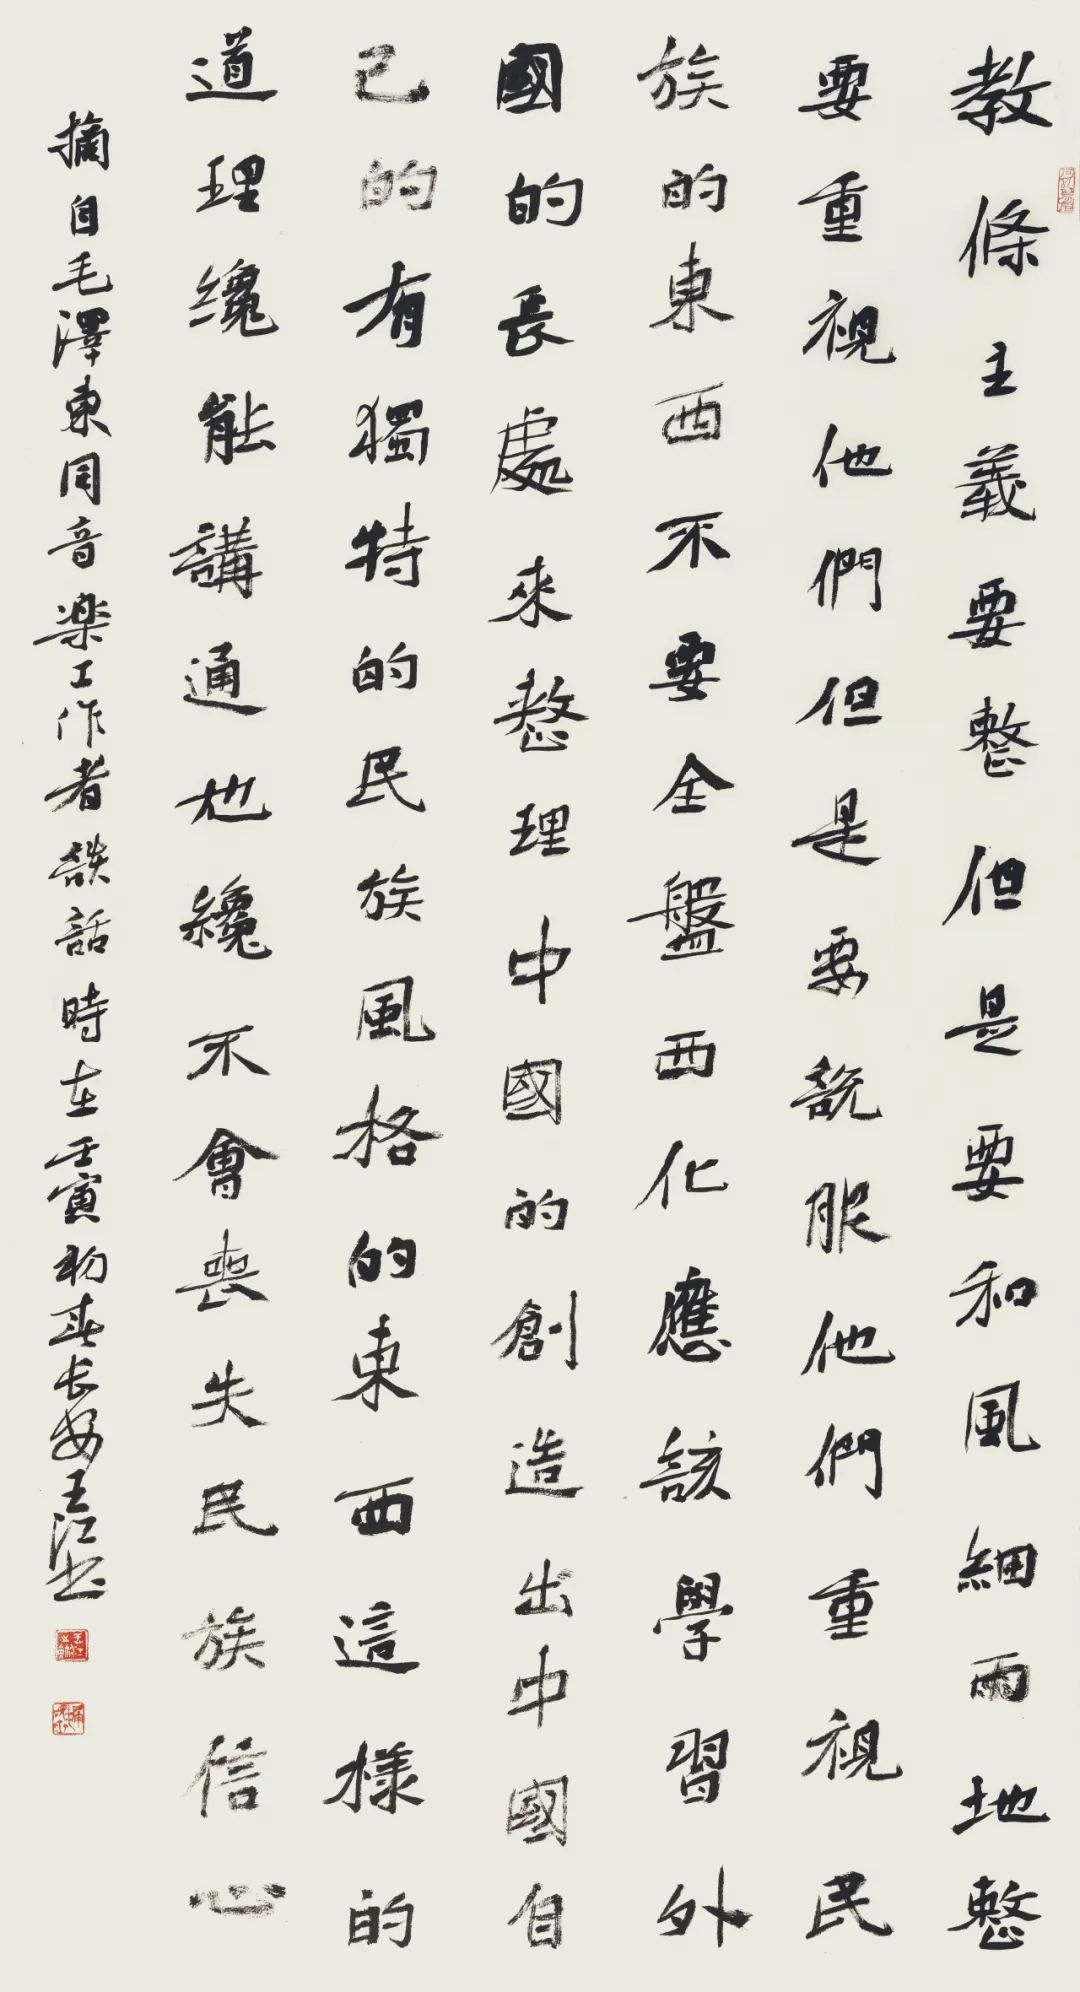 教條主義要整但是要和風細雨地整
要重視他們但是要說服他們重視民
族的東西不要全盤西化應該學習外
國的長處來整理中國的創造出中國自
己的有獨特的民族風格的東西這樣的
道理纔能講通也纔不會喪失民族信心
摘自毛澤東同音楽工作者談話時在壬寅初春长安王江书